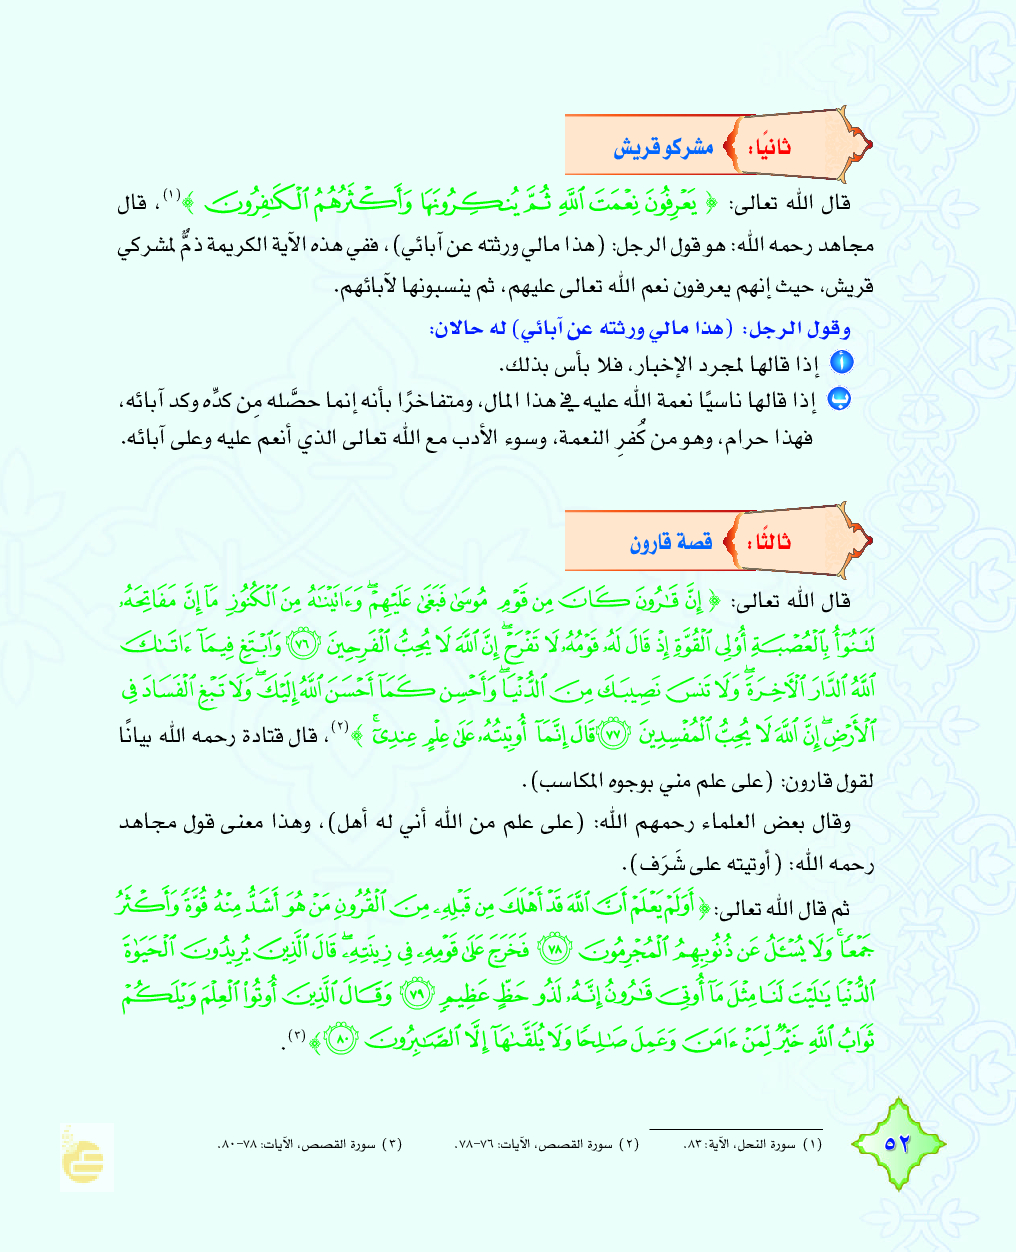 ثانيًا: مشركو قريش
قال الله تعالى: ﴿ يَعْرِفُونَ نِعْمَتَ اللَّهِ ثُمَّ يُنكِرُونَهَا وَأَكْثَرُهُمُ الْكَافِرُونَ ﴾(١)، قال
مجاهد رحمه الله: هو قول الرجل: (هذا مالي ورثته عن آبائي)، ففي هذه الآية الكريمة ذمٌّ لمشركي
قريش، حيث إنهم يعرفون نعم الله تعالى عليهم، ثم ينسبونها لآبائهم.
وقول الرجل: (هذا مالي ورثته عن آبائي) له حالان:
أ إذا قالها لمجرد الإخبار، فلا بأس بذلك.
ب إذا قالها ناسيًا نعمة الله عليه في هذا المال، ومتفاخرًا بأنه إنما حصَّله مِن كدِّه وكد آبائه،
فهذا حرام، وهو من كُفرِ النعمة، وسوء الأدب مع الله تعالى الذي أنعم عليه وعلى آبائه.
ثالثًا: قصة قارون
قال الله تعالى: ﴿ إِنَّ قَٰرُونَ كَانَ مِن قَوْمِ مُوسَىٰ فَبَغَىٰ عَلَيْهِمْ ۖ وَءَاتَيْنَٰهُ مِنَ ٱلْكُنُوزِ مَآ إِنَّ مَفَاتِحَهُۥ
لَتَنُوٓأُ بِٱلْعُصْبَةِ أُو۟لِى ٱلْقُوَّةِ إِذْ قَالَ لَهُۥ قَوْمُهُۥ لَا تَفْرَحْ ۖ إِنَّ ٱللَّهَ لَا يُحِبُّ ٱلْفَرِحِينَ ٧٦ وَٱبْتَغِ فِيمَآ ءَاتَىٰكَ
ٱللَّهُ ٱلدَّارَ ٱلْءَاخِرَةَ ۖ وَلَا تَنسَ نَصِيبَكَ مِنَ ٱلدُّنْيَا ۖ وَأَحْسِن كَمَآ أَحْسَنَ ٱللَّهُ إِلَيْكَ ۖ وَلَا تَبْغِ ٱلْفَسَادَ فِى
ٱلْأَرْضِ ۖ إِنَّ ٱللَّهَ لَا يُحِبُّ ٱلْمُفْسِدِينَ ٧٧ قَالَ إِنَّمَآ أُوتِيتُهُۥ عَلَىٰ عِلْمٍ عِندِىٓ ۚ ﴾(٢)، قال قتادة رحمه الله بيانًا
لقول قارون: (على علم مني بوجوه المكاسب).
وقال بعض العلماء رحمهم الله: (على علم من الله أني له أهل)، وهذا معنى قول مجاهد
رحمه الله: (أوتيته على شَرَف).
ثم قال الله تعالى: ﴿ أَوَلَمْ يَعْلَمْ أَنَّ ٱللَّهَ قَدْ أَهْلَكَ مِن قَبْلِهِۦ مِنَ ٱلْقُرُونِ مَنْ هُوَ أَشَدُّ مِنْهُ قُوَّةً وَأَكْثَرُ
جَمْعًا ۚ وَلَا يُسْـَٔلُ عَن ذُنُوبِهِمُ ٱلْمُجْرِمُونَ ٧٨ فَخَرَجَ عَلَىٰ قَوْمِهِۦ فِى زِينَتِهِۦ ۖ قَالَ ٱلَّذِينَ يُرِيدُونَ ٱلْحَيَوٰةَ
ٱلدُّنْيَا يَٰلَيْتَ لَنَا مِثْلَ مَآ أُوتِىَ قَٰرُونُ إِنَّهُۥ لَذُو حَظٍّ عَظِيمٍ ٧٩ وَقَالَ ٱلَّذِينَ أُوتُوا۟ ٱلْعِلْمَ وَيْلَكُمْ
ثَوَابُ ٱللَّهِ خَيْرٌ لِّمَنْ ءَامَنَ وَعَمِلَ صَٰلِحًا وَلَا يُلَقَّىٰهَآ إِلَّا ٱلصَّٰبِرُونَ ٨٠ ﴾(٣).
(١) سورة النحل، الآية: ٨٣. (٢) سورة القصص، الآيات: ٧٦-٧٨. (٣) سورة القصص، الآيات: ٧٨-٨٠.
٥٢